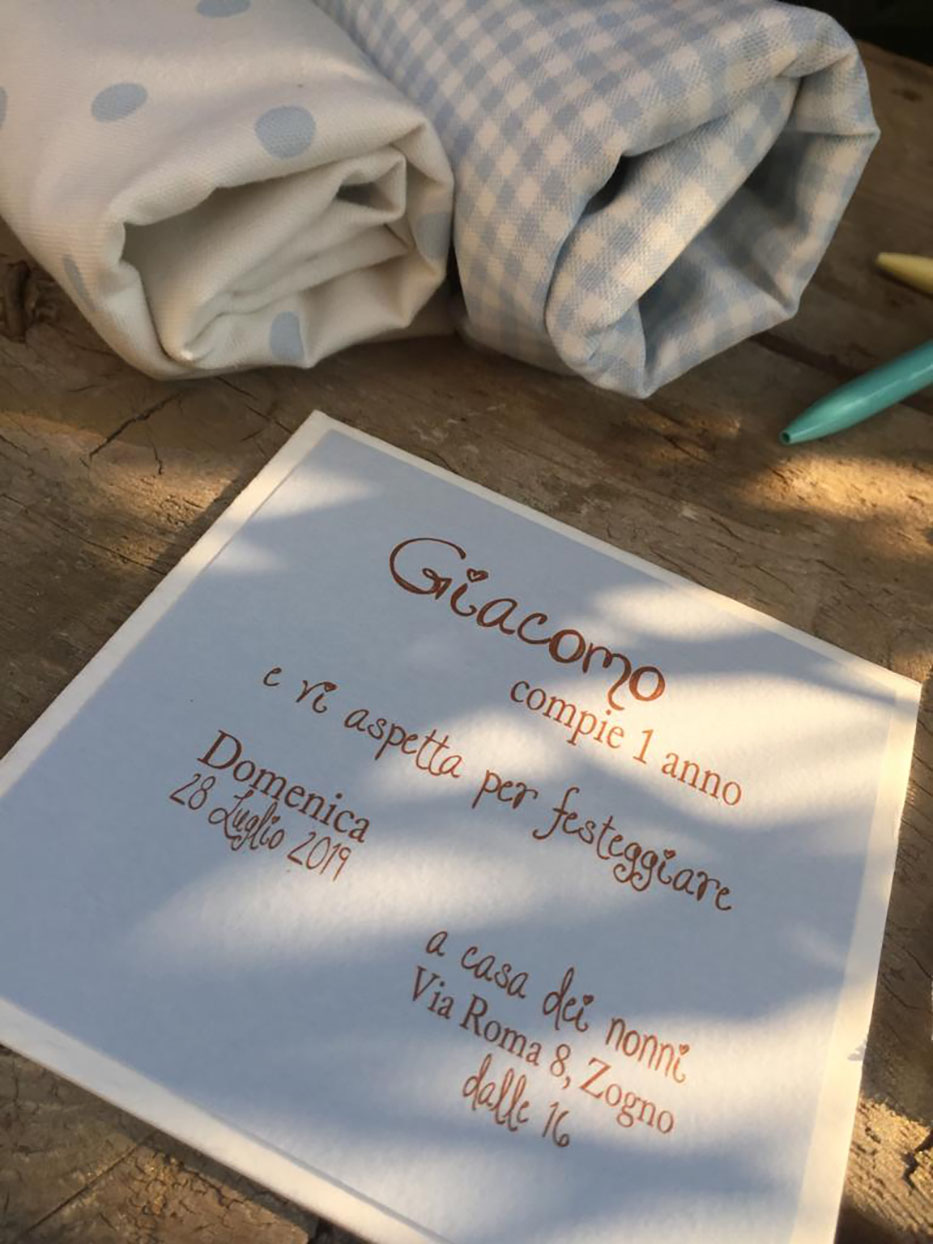 Giacomo
compie 1 anno
e vi aspetta per festeggiare
Domenica
28 Luglio 2019
a casa dei nonni
Via Roma 8, Zogno
dalle 16